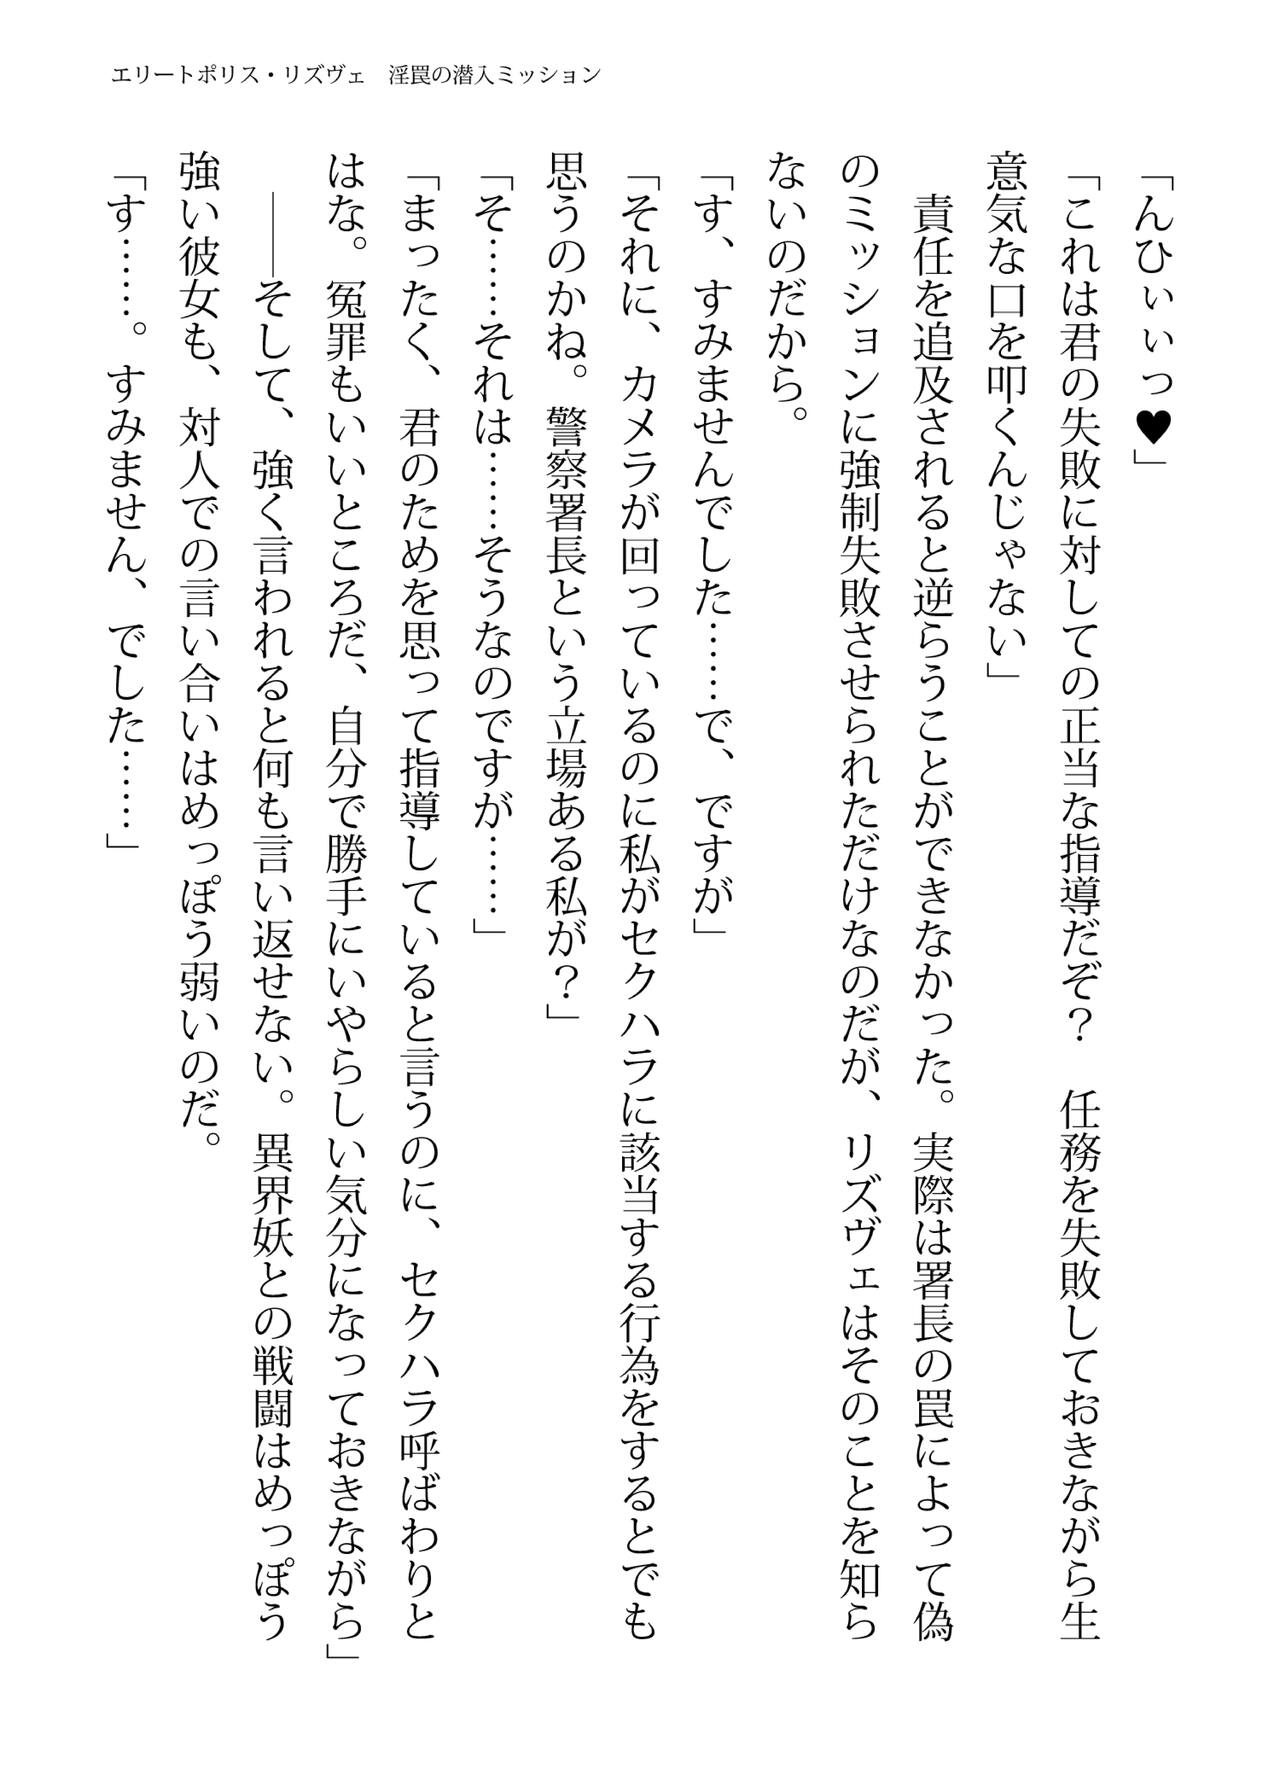 エリートポリス・リズヴェ　淫罠の潜入ミッション
「んひぃぃっ♥」
「これは君の失敗に対しての正当な指導だぞ？　任務を失敗しておきながら生
意気な口を叩くんじゃない」
　責任を追及されると逆らうことができなかった。実際は署長の罠によって偽
のミッションに強制失敗させられただけなのだが、リズヴェはそのことを知ら
ないのだから。
「す、すみませんでした……で、ですが」
「それに、カメラが回っているのに私がセクハラに該当する行為をするとでも
思うのかね。警察署長という立場ある私が？」
「そ……それは……そうなのですが……」
「まったく、君のためを思って指導していると言うのに、セクハラ呼ばわりと
はな。冤罪もいいところだ、自分で勝手にいやらしい気分になっておきながら」
　――そして、強く言われると何も言い返せない。異界妖との戦闘はめっぽう
強い彼女も、対人での言い合いはめっぽう弱いのだ。
「す……。すみません、でした……」